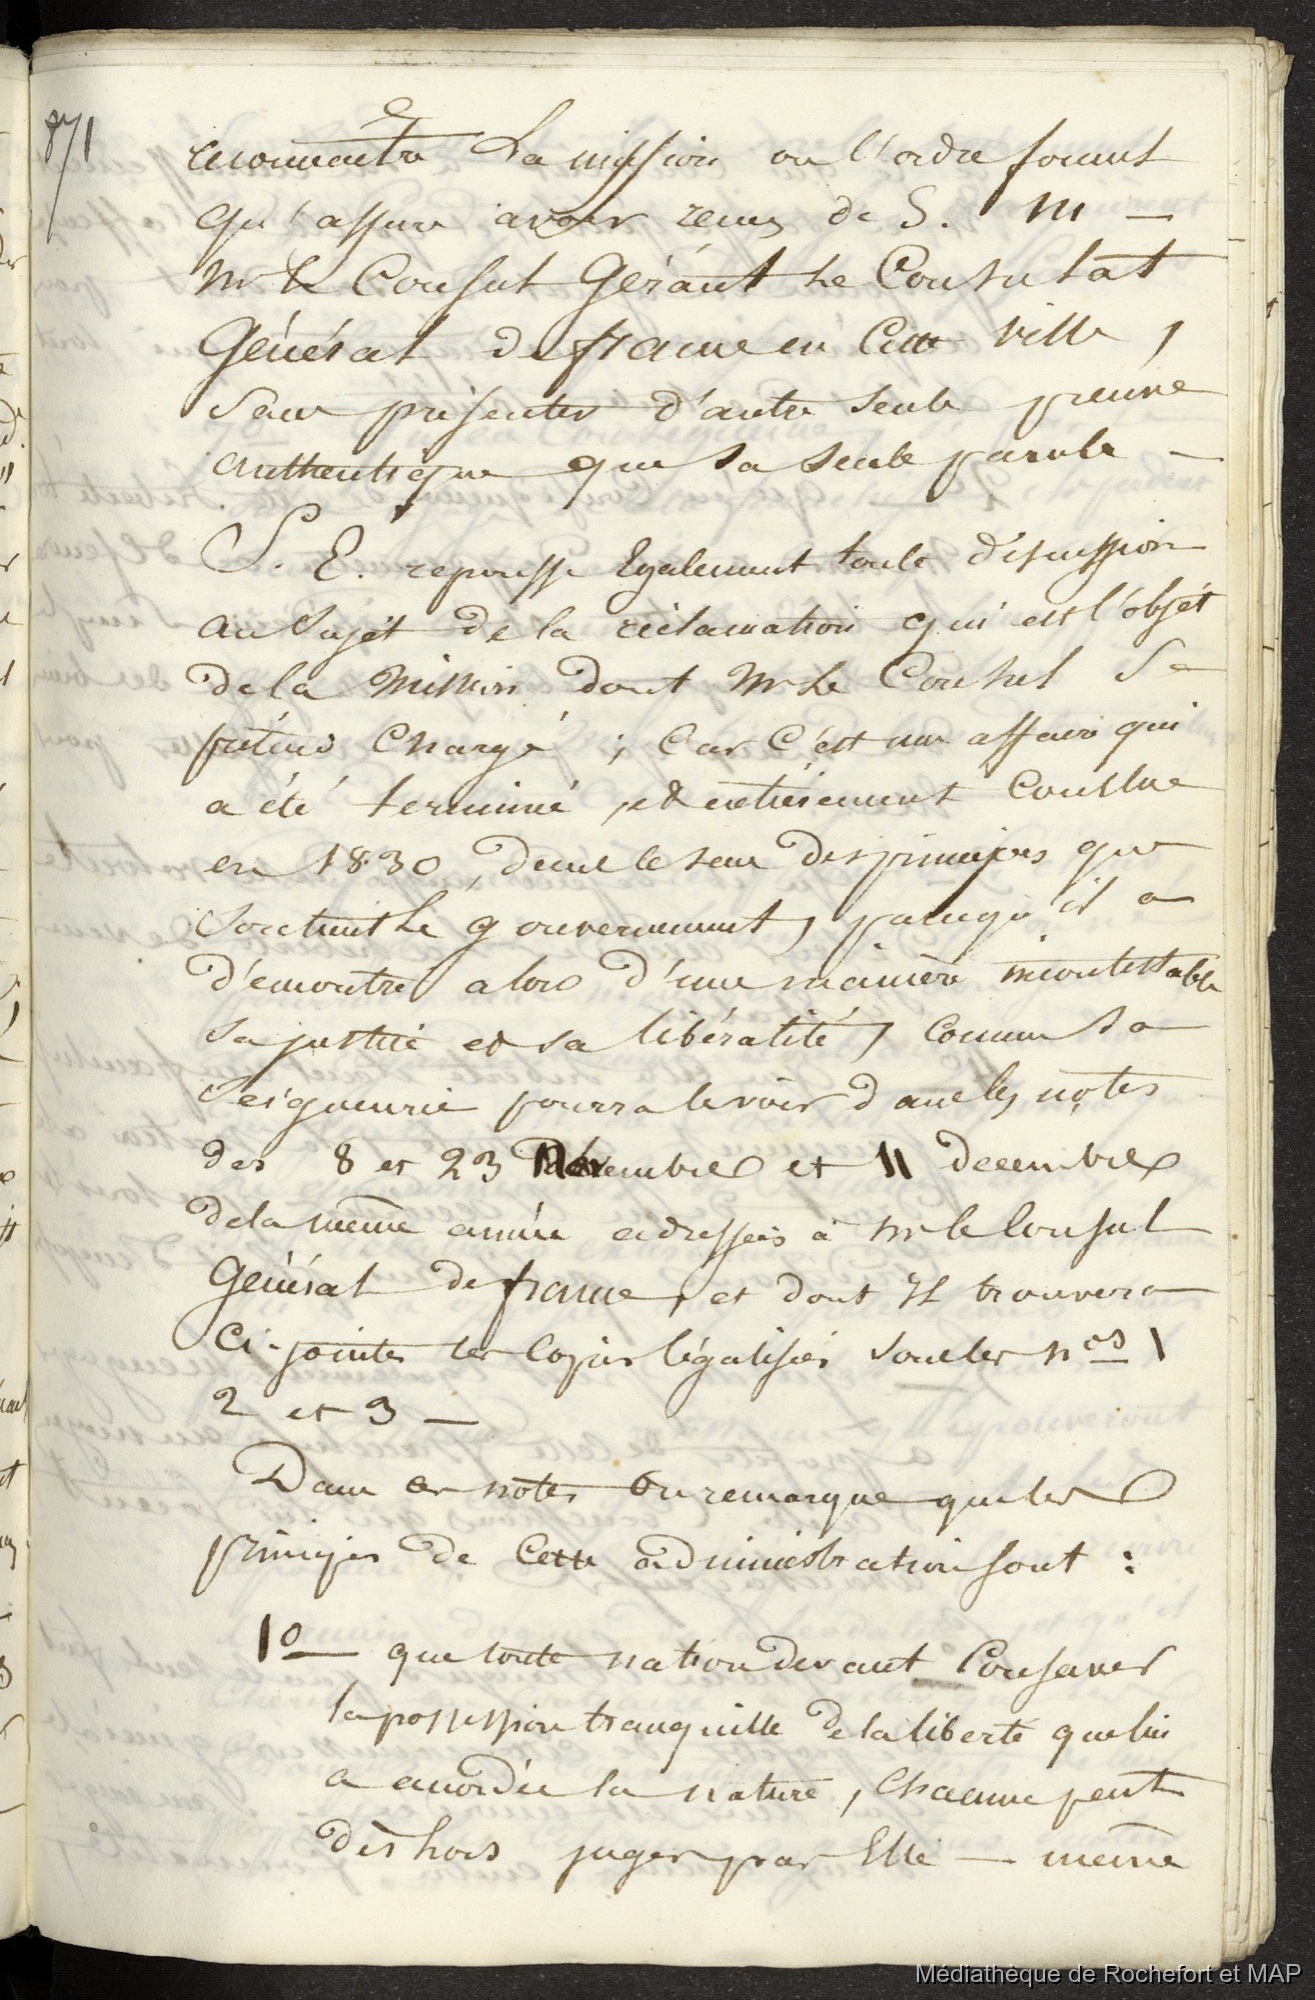 871
reconnaitre La mission ou l'ordre formel
qu'assure avoir reçus de S. M —
Mr le Consul Gérant le Consulat
Général de france en Cette ville,
Sans présenter d'autre seule preuve
authentique que sa seule parole —
S. E. repousse Egalement toute discussion
au sujet de la réclamation qui est l'objet
de la Mission dont Mr Le Consul se
prétend Chargé ; Car C'est une affaire qui
a été terminé, et entièrement Conclue
en 1830, dans le sens des principes que
soutient Le gouvernement, parcequ'il a
démontré alors d'une manière incontestable
sa justice et sa libéralité, Comme sa
Seigneurie pourra le voir dans les notes
des 8 et 23 Novembre et 11 decembre
de la même année adressées à Mr le Consul
Général de france, et dont Il trouvera
Ci-jointes les Copies légalisées sous les nos 1
2 et 3 —
Dans ces notes On remarque que les
principes de Cette administration sont :
1o — que toute nation devant Conserver
la possession tranquille de la liberté que lui
a accordée la nature, Chacune peut
dès lors juger par Elle — même
Médiathèque de Rochefort et MAP